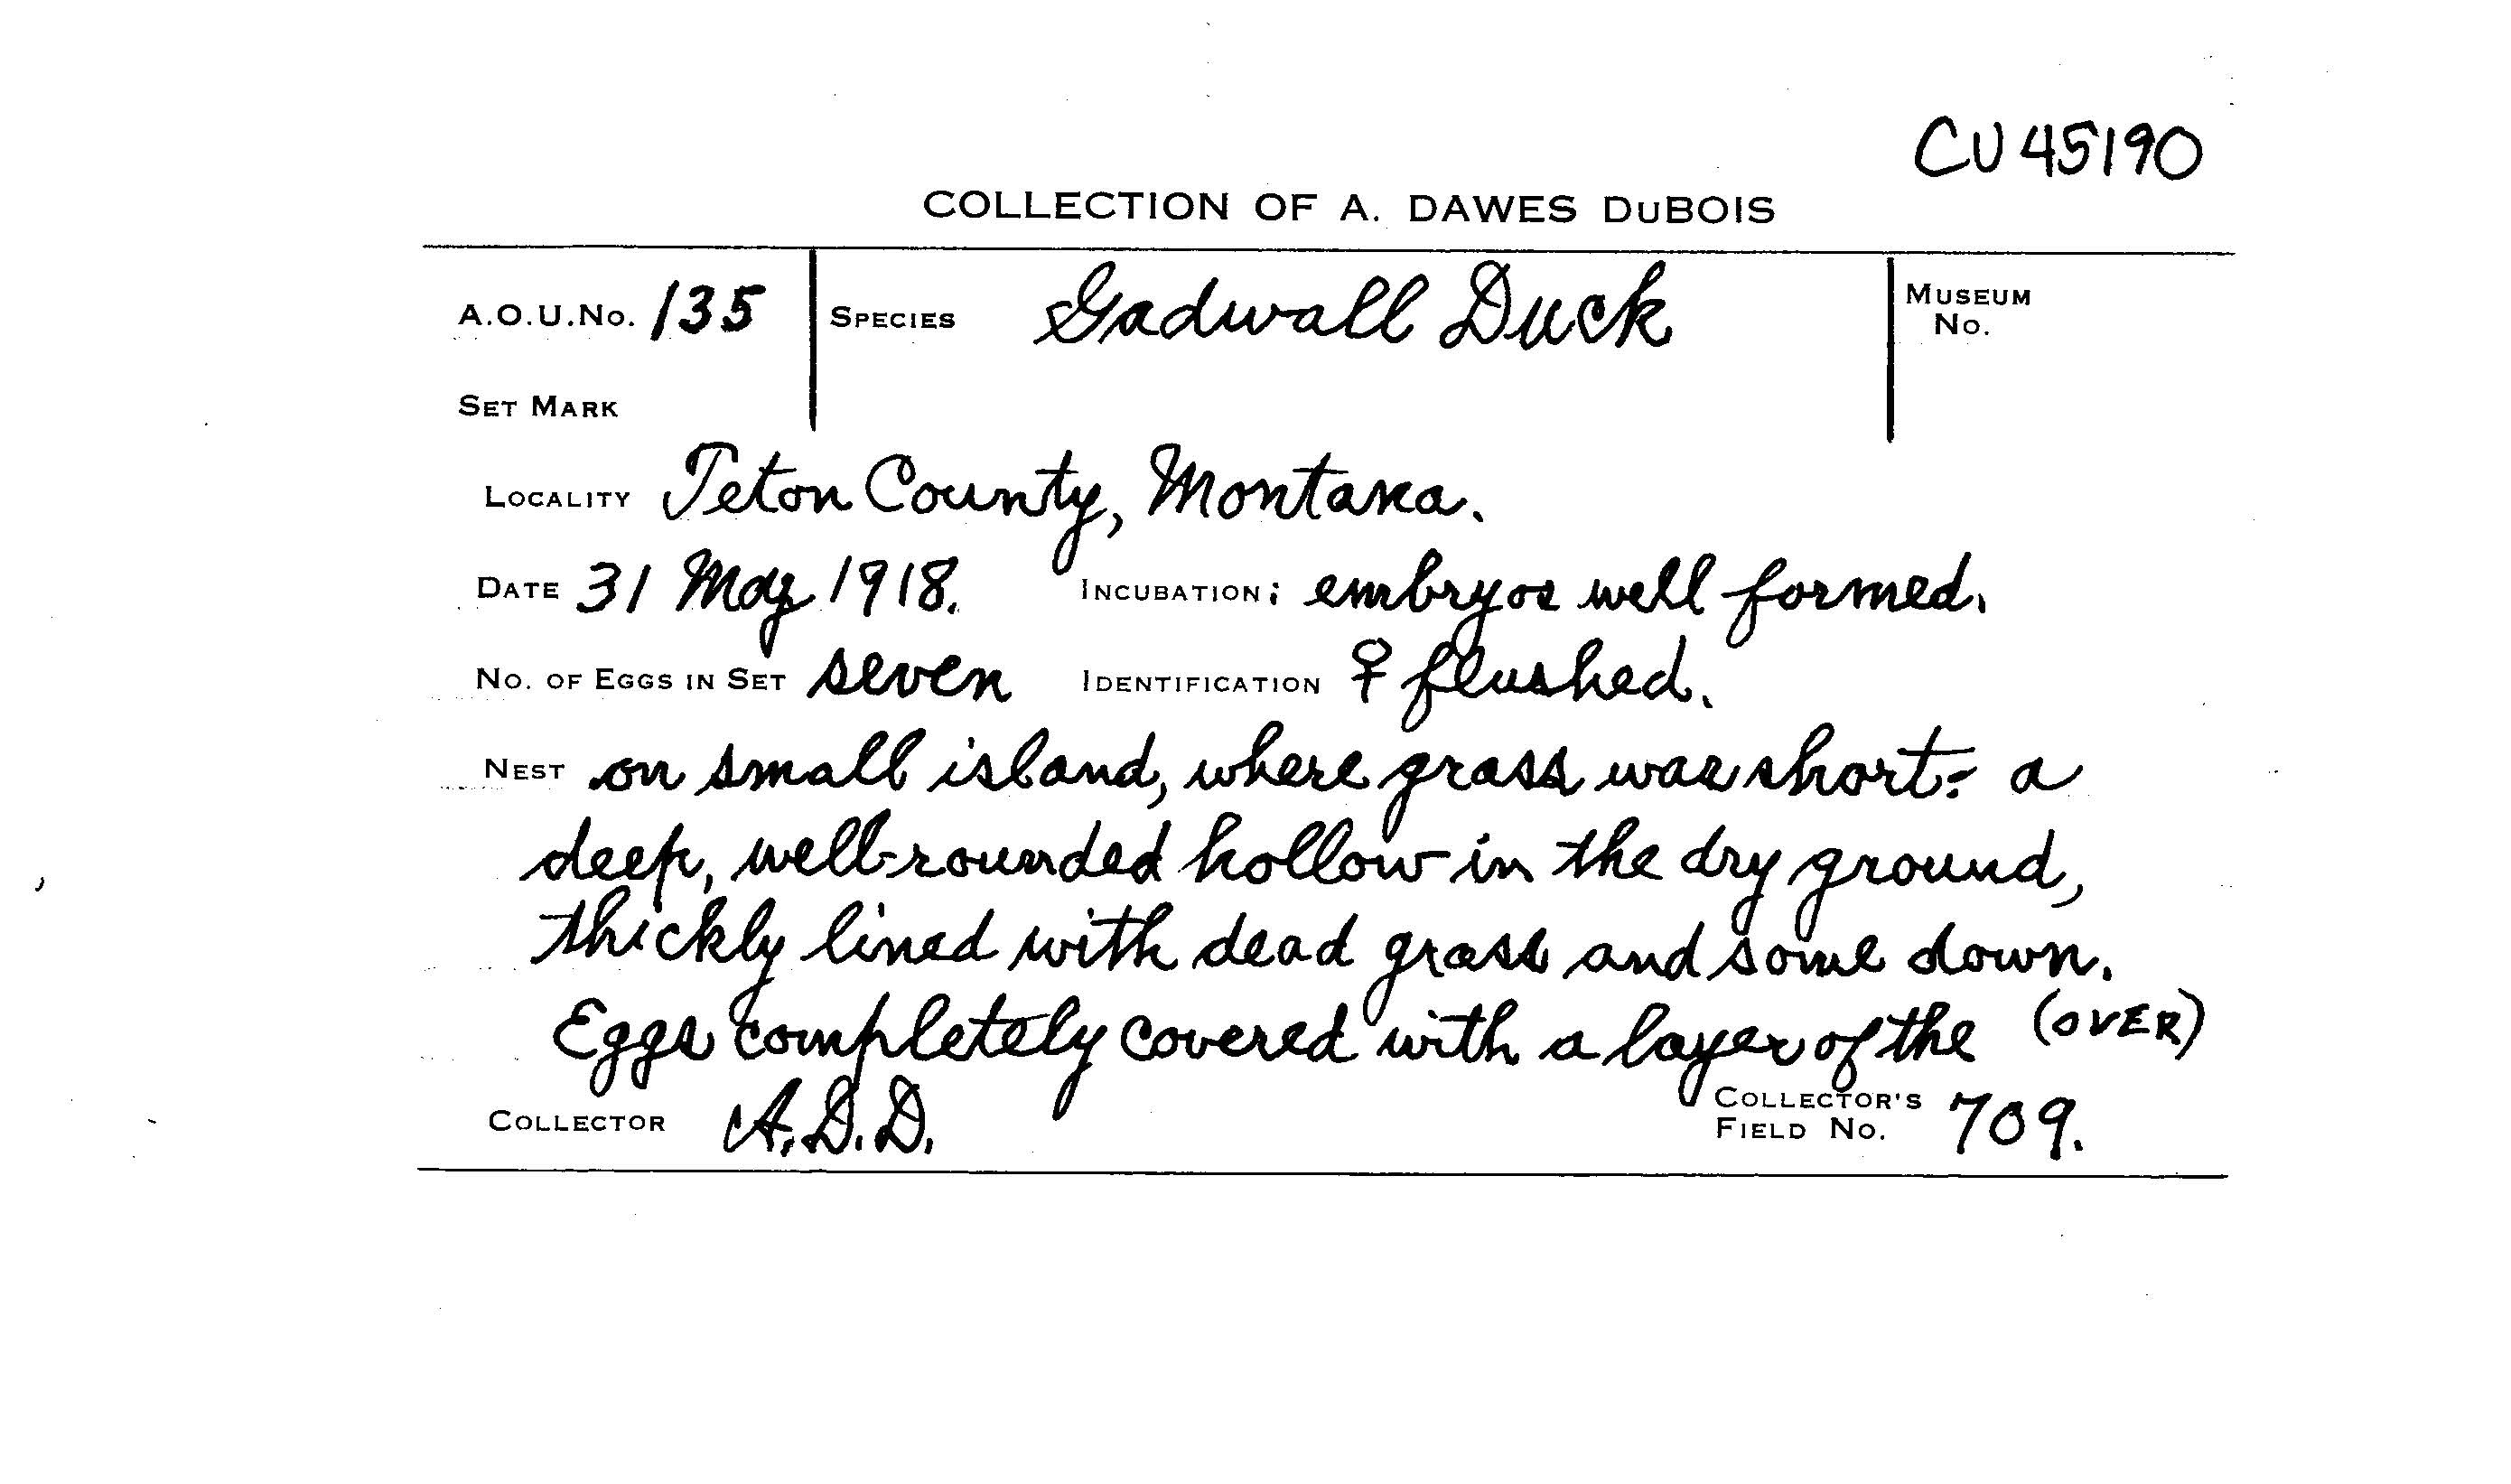 CU 45190
COLLECTION OF A. DAWES DUBOIS
A.O.U. No. 135 SPECIES Gadwall Duck MUSEUM No.
SET MARK
LOCALITY Teton County, Montana.
DATE 31 May 1918. INCUBATION: embryos well formed.
NO. OF EGGS IN SET seven IDENTIFICATION ♀ flushed.
NEST on small island, where grass was short:- a
deep, well-rounded hollow in the dry ground,
thickly lined with dead grass and some down.
Eggs completely covered with a layer of the (OVER)
COLLECTOR A.D.D. COLLECTOR'S FIELD No. 709.